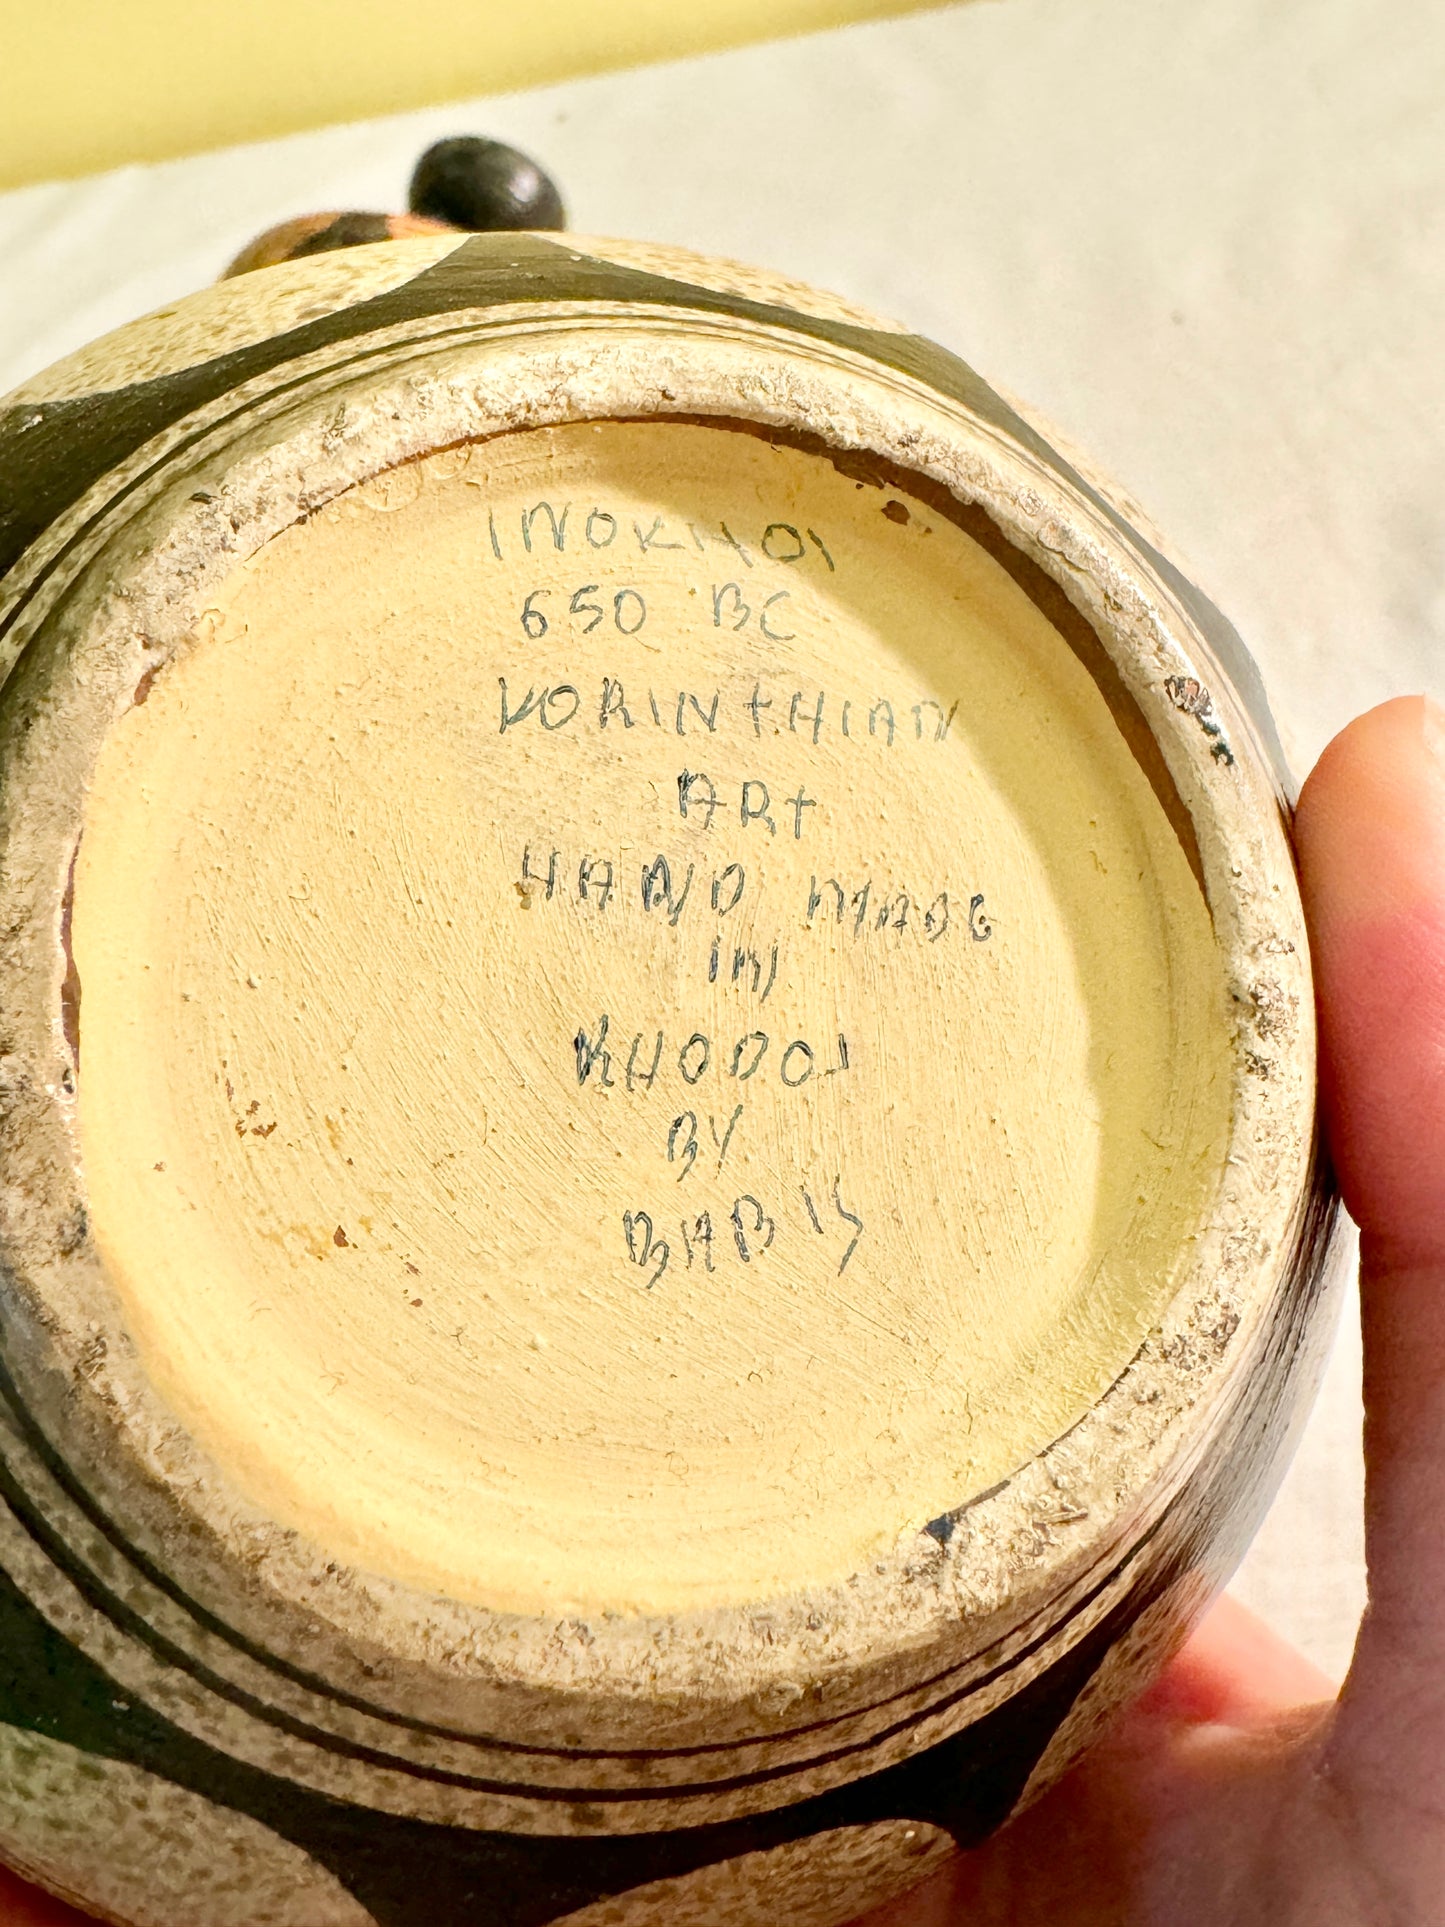 INOKHOI
650 BC
KORINtHIAN
ARt
HAND MADE
IN
RHODOS
BY
BABIS